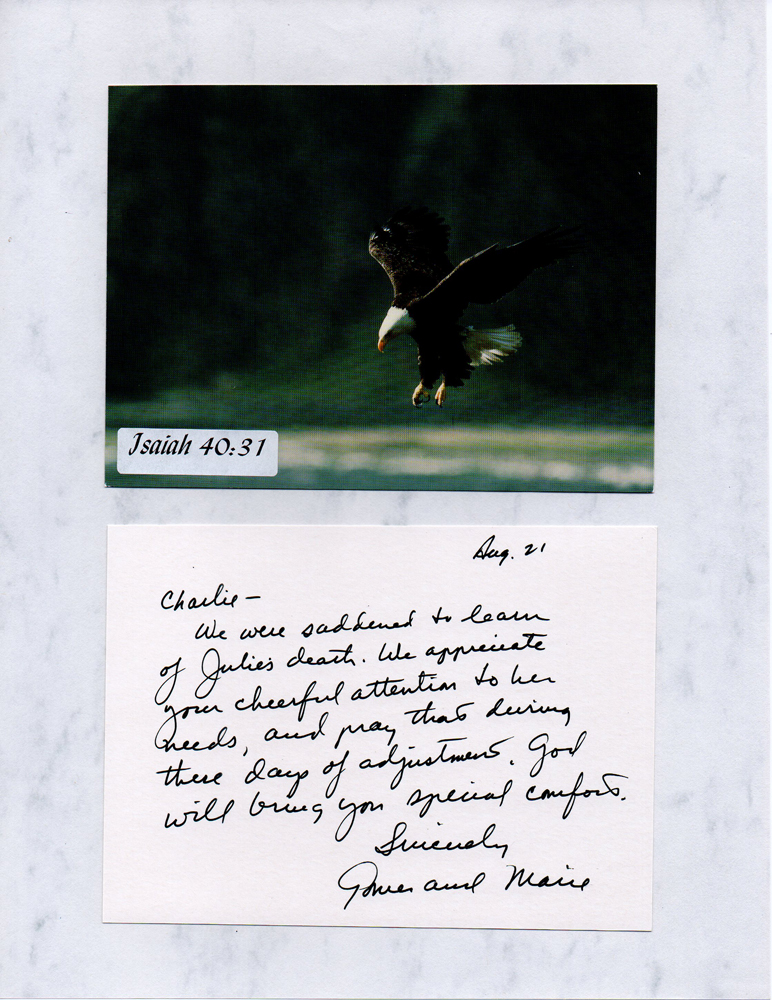 Isaiah 40:31
Aug. 21
Charlie –
We were saddened to learn
of Julie's death. We appreciate
your cheerful attention to her
needs, and pray that during
these days of adjustment, God
will bring you special comfort.
Sincerely
and Marie